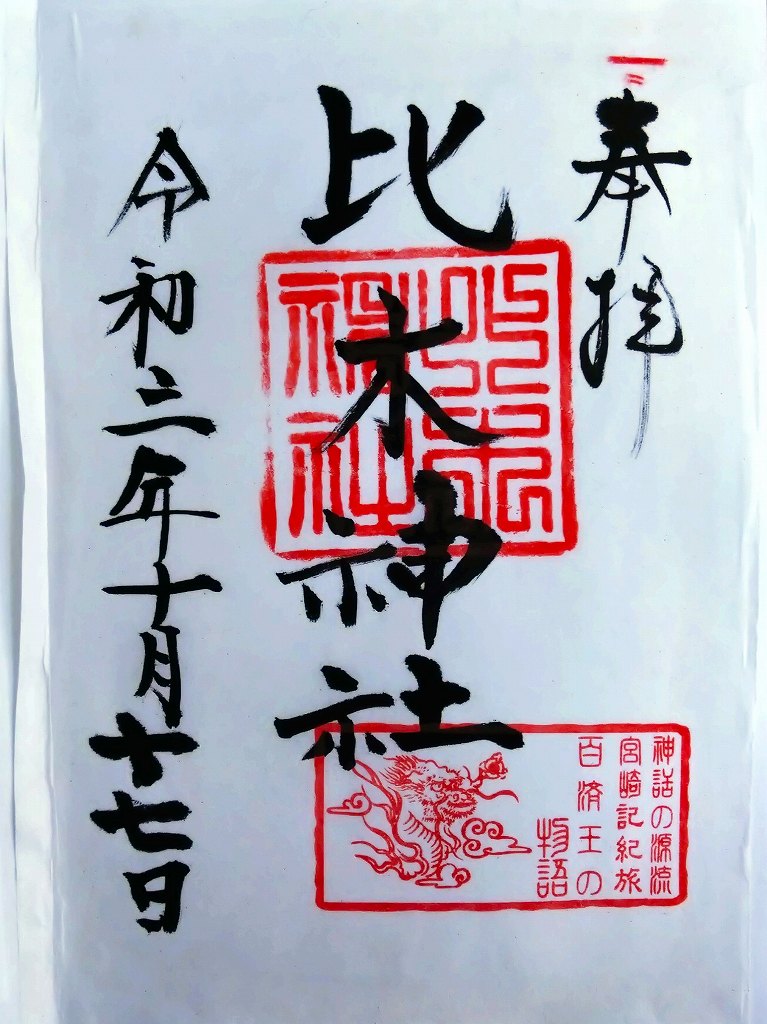 奉拝
比木神社
比木神社
神話の源流
宮崎記紀旅
百済王の
物語
令和三年十月十七日